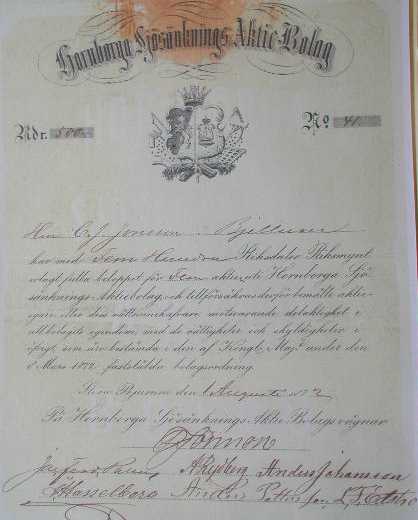 Hornborga Sjösäknings Aktie-Bolag
Rdr. 500 No 41.
Herr C. J. Jonsson i
har med Fem Hundra Riksdaler Riksmynt
erlagt fulla beloppet för Fem aktier uti Hornborga Sjö
sänknings Aktiebolag och tillförsäkras derför bemälte aktie-
egare eller dess rättsinnehafvare motsvarande delaktighet i
allt bolagets egendom med de rättigheter och skyldigheter i
öfrigt, som äro bestämda i den af Kongl. Maj:t under den
8 Mars 1872 fastställda bolagsordning.
Stora Bjurum den 1 Augusti 1872
På Hornborga Sjösänknings Aktie Bolags vägnar
A Rydberg Anders Johansson
Hasselbom Anders Pettersson